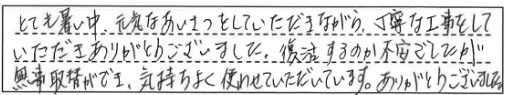 とても暑い中、元気なあいさつをしていただきながら、丁寧な工事をして
いただきありがとうございました。復活するのか不安でしたが
無事取替ができ、気持ちよく使わせていただいています。ありがとうございました